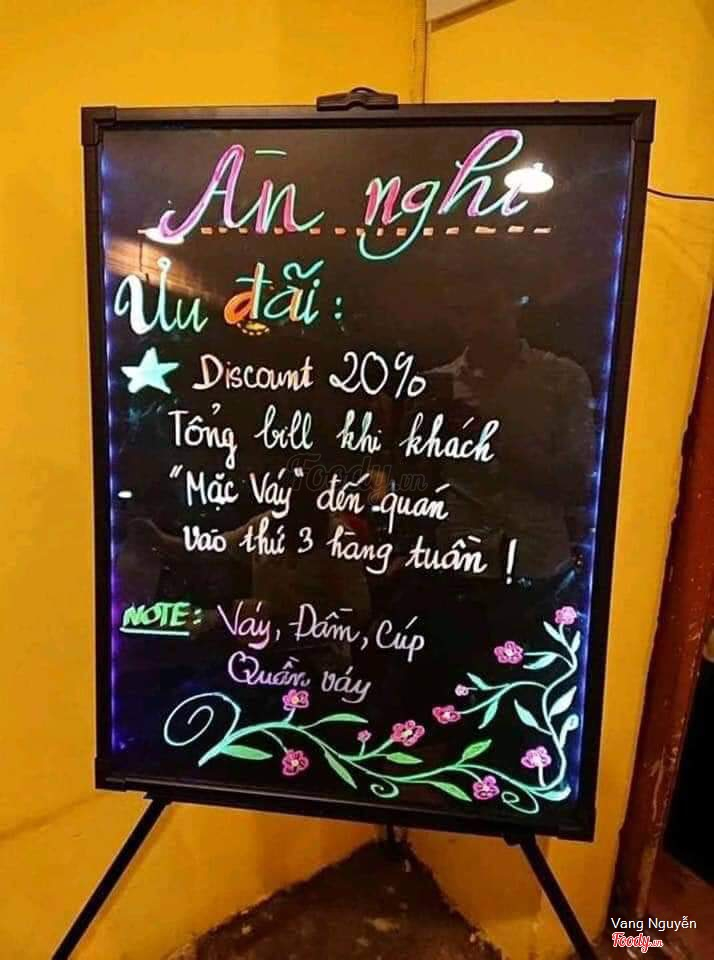 Ăn nghi
Ưu đãi:
Discount 20%
Tổng bill khi khách
- "Mặc Váy" đến quán
vào thứ 3 hàng tuần!
NOTE: Váy, Đầm, Cúp
Quần váy
Foody.vn
Vang Nguyễn
Foody.vn